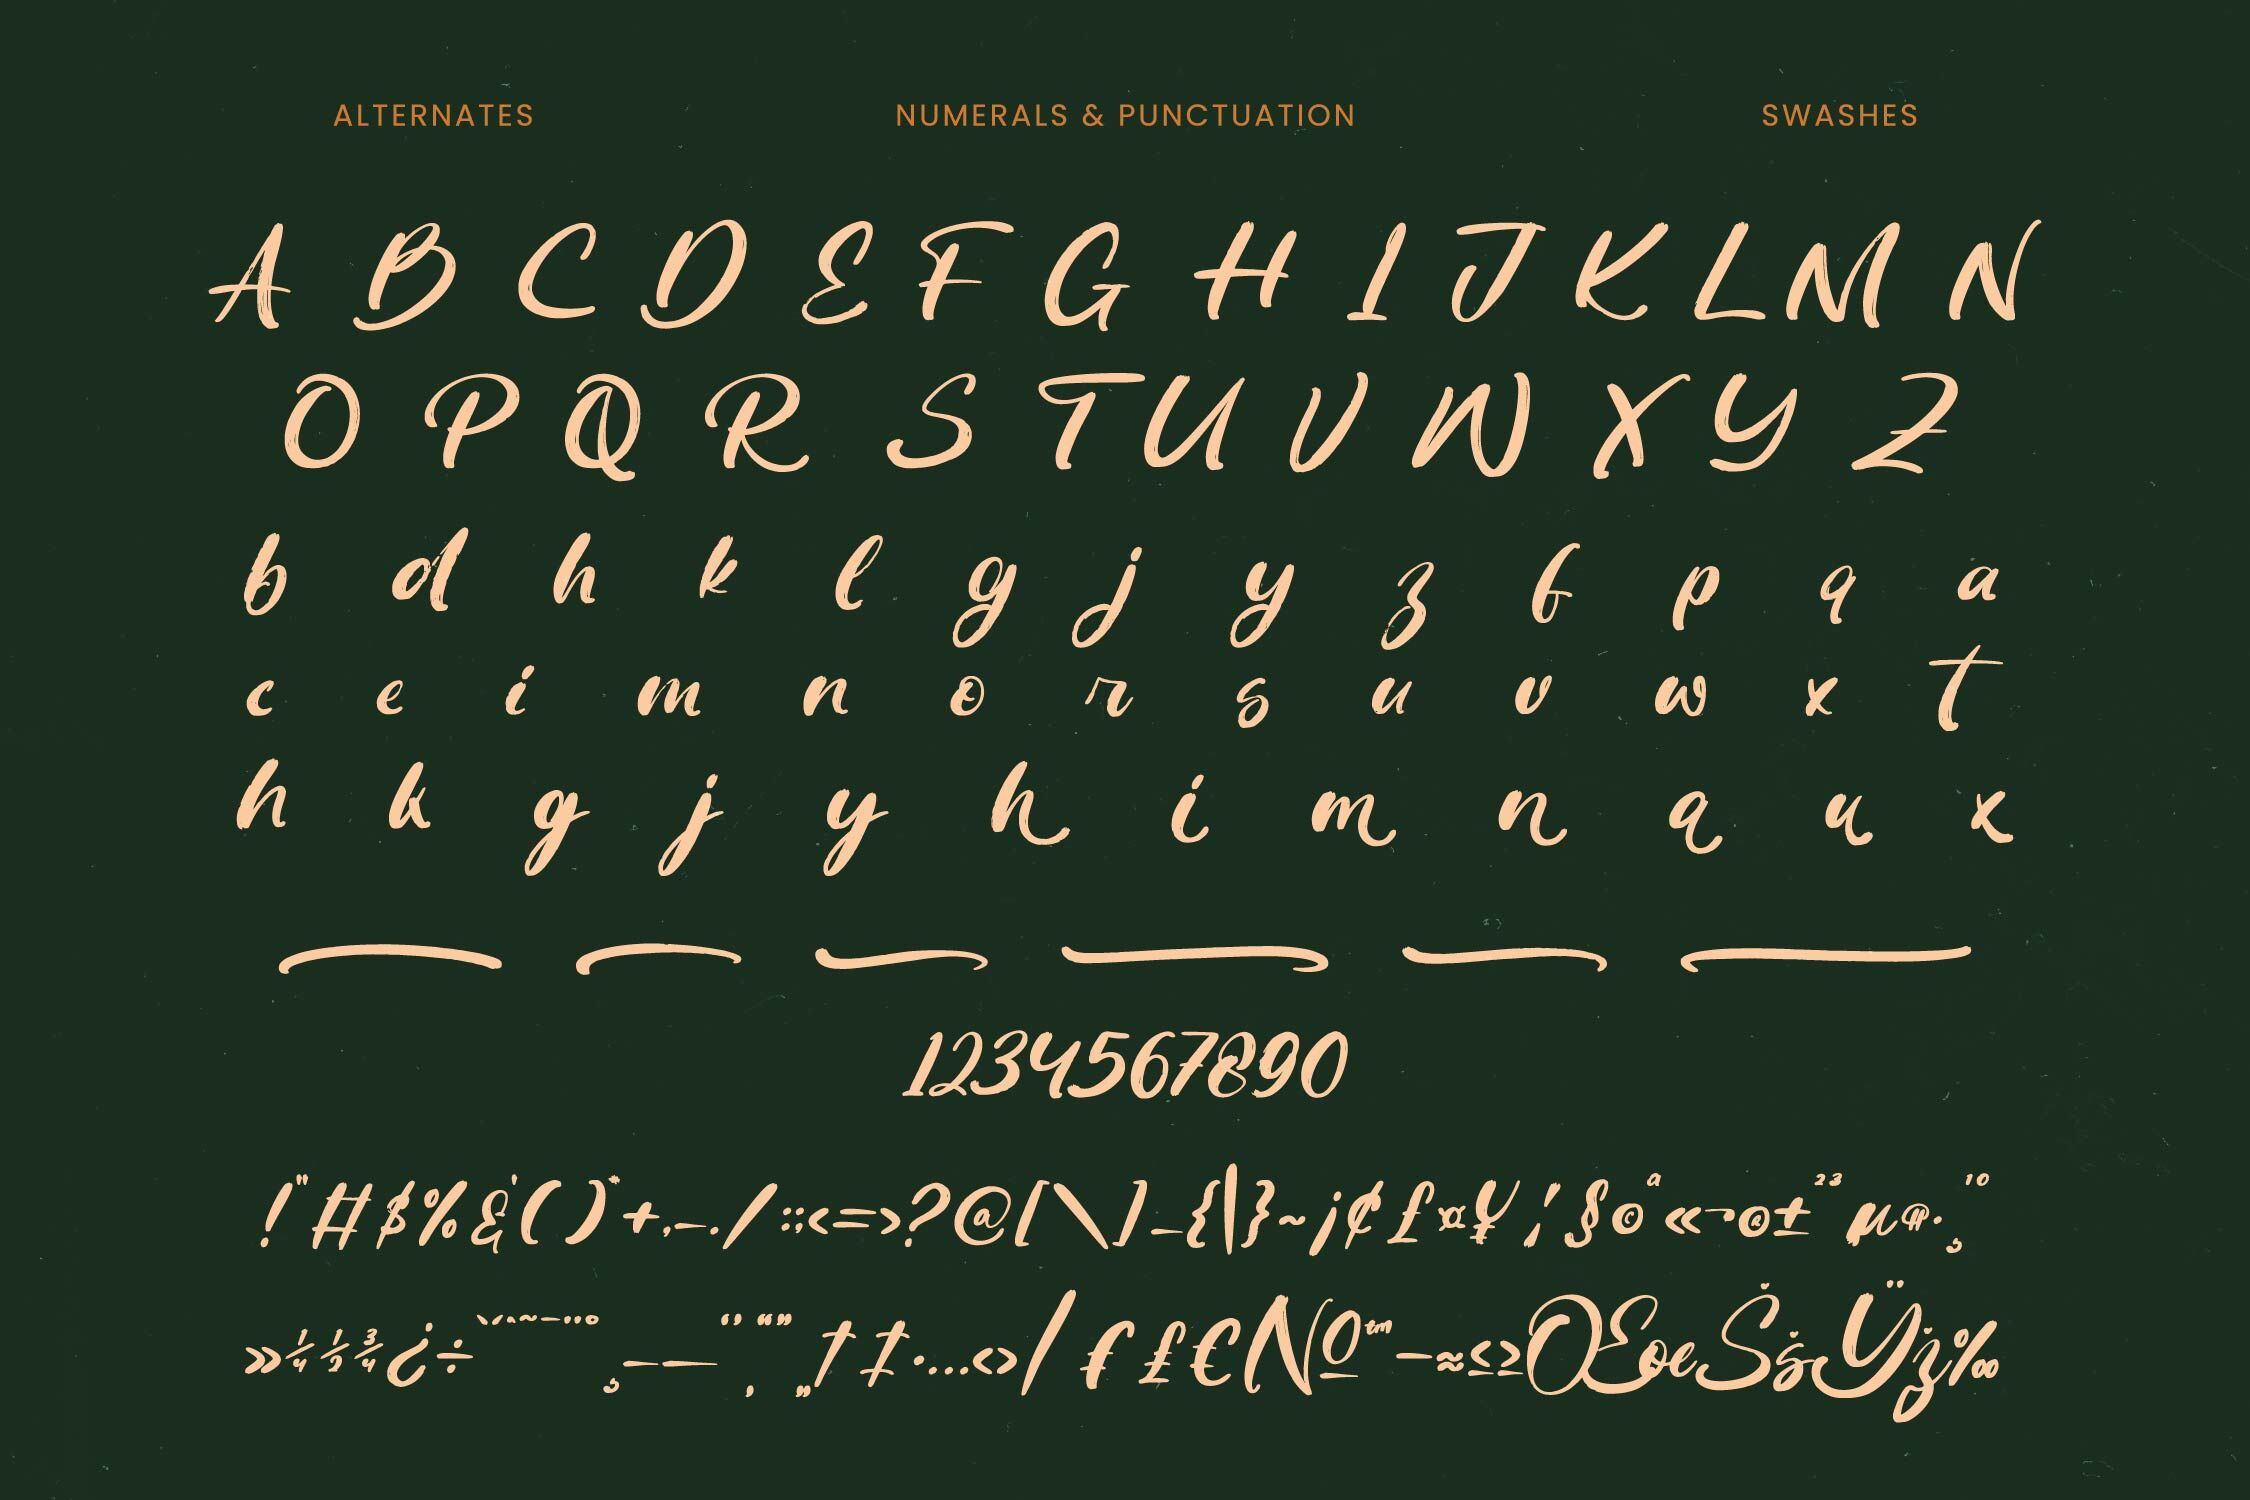 ALTERNATES NUMERALS & PUNCTUATION SWASHES
A B C D E F G H I J K L M N
O P Q R S T U V W X Y Z
b d h k l g j y z f p q a
c e i m n o r s u v w x t
h k g j y h i m n q u x
1234567890
!"#$%&'()*+,-./:;<=>?@[\]_{|}~¡¢£¤¥¦§©ª«¬®±²³µ¶·¸¹º
»¼½¾¿÷ ¸–—‘’‚“”„†‡•…‹›⁄ƒ₤€№™−≈≤≥ŒœṠṡŸż‰